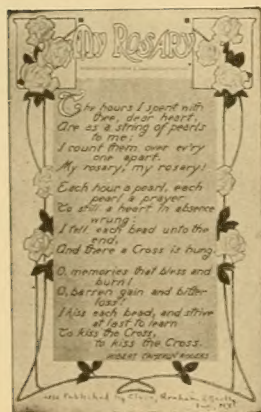 MY ROSARY
The hours I spent with
thee, dear heart,
Are as a string of pearls
to me;
I count them over ev'ry
one apart.
My rosary, my rosary!
Each hour a pearl, each
pearl a prayer
To still a heart in absence
wrung;
I tell each bead unto the
end,
And there a Cross is hung.
O, memories that bless and
burn!
O, barren gain and bitter
loss!
I kiss each bead, and strive
at last to learn
To kiss the Cross,
to kiss the Cross.
ROBERT CAMERON ROGERS
Published by